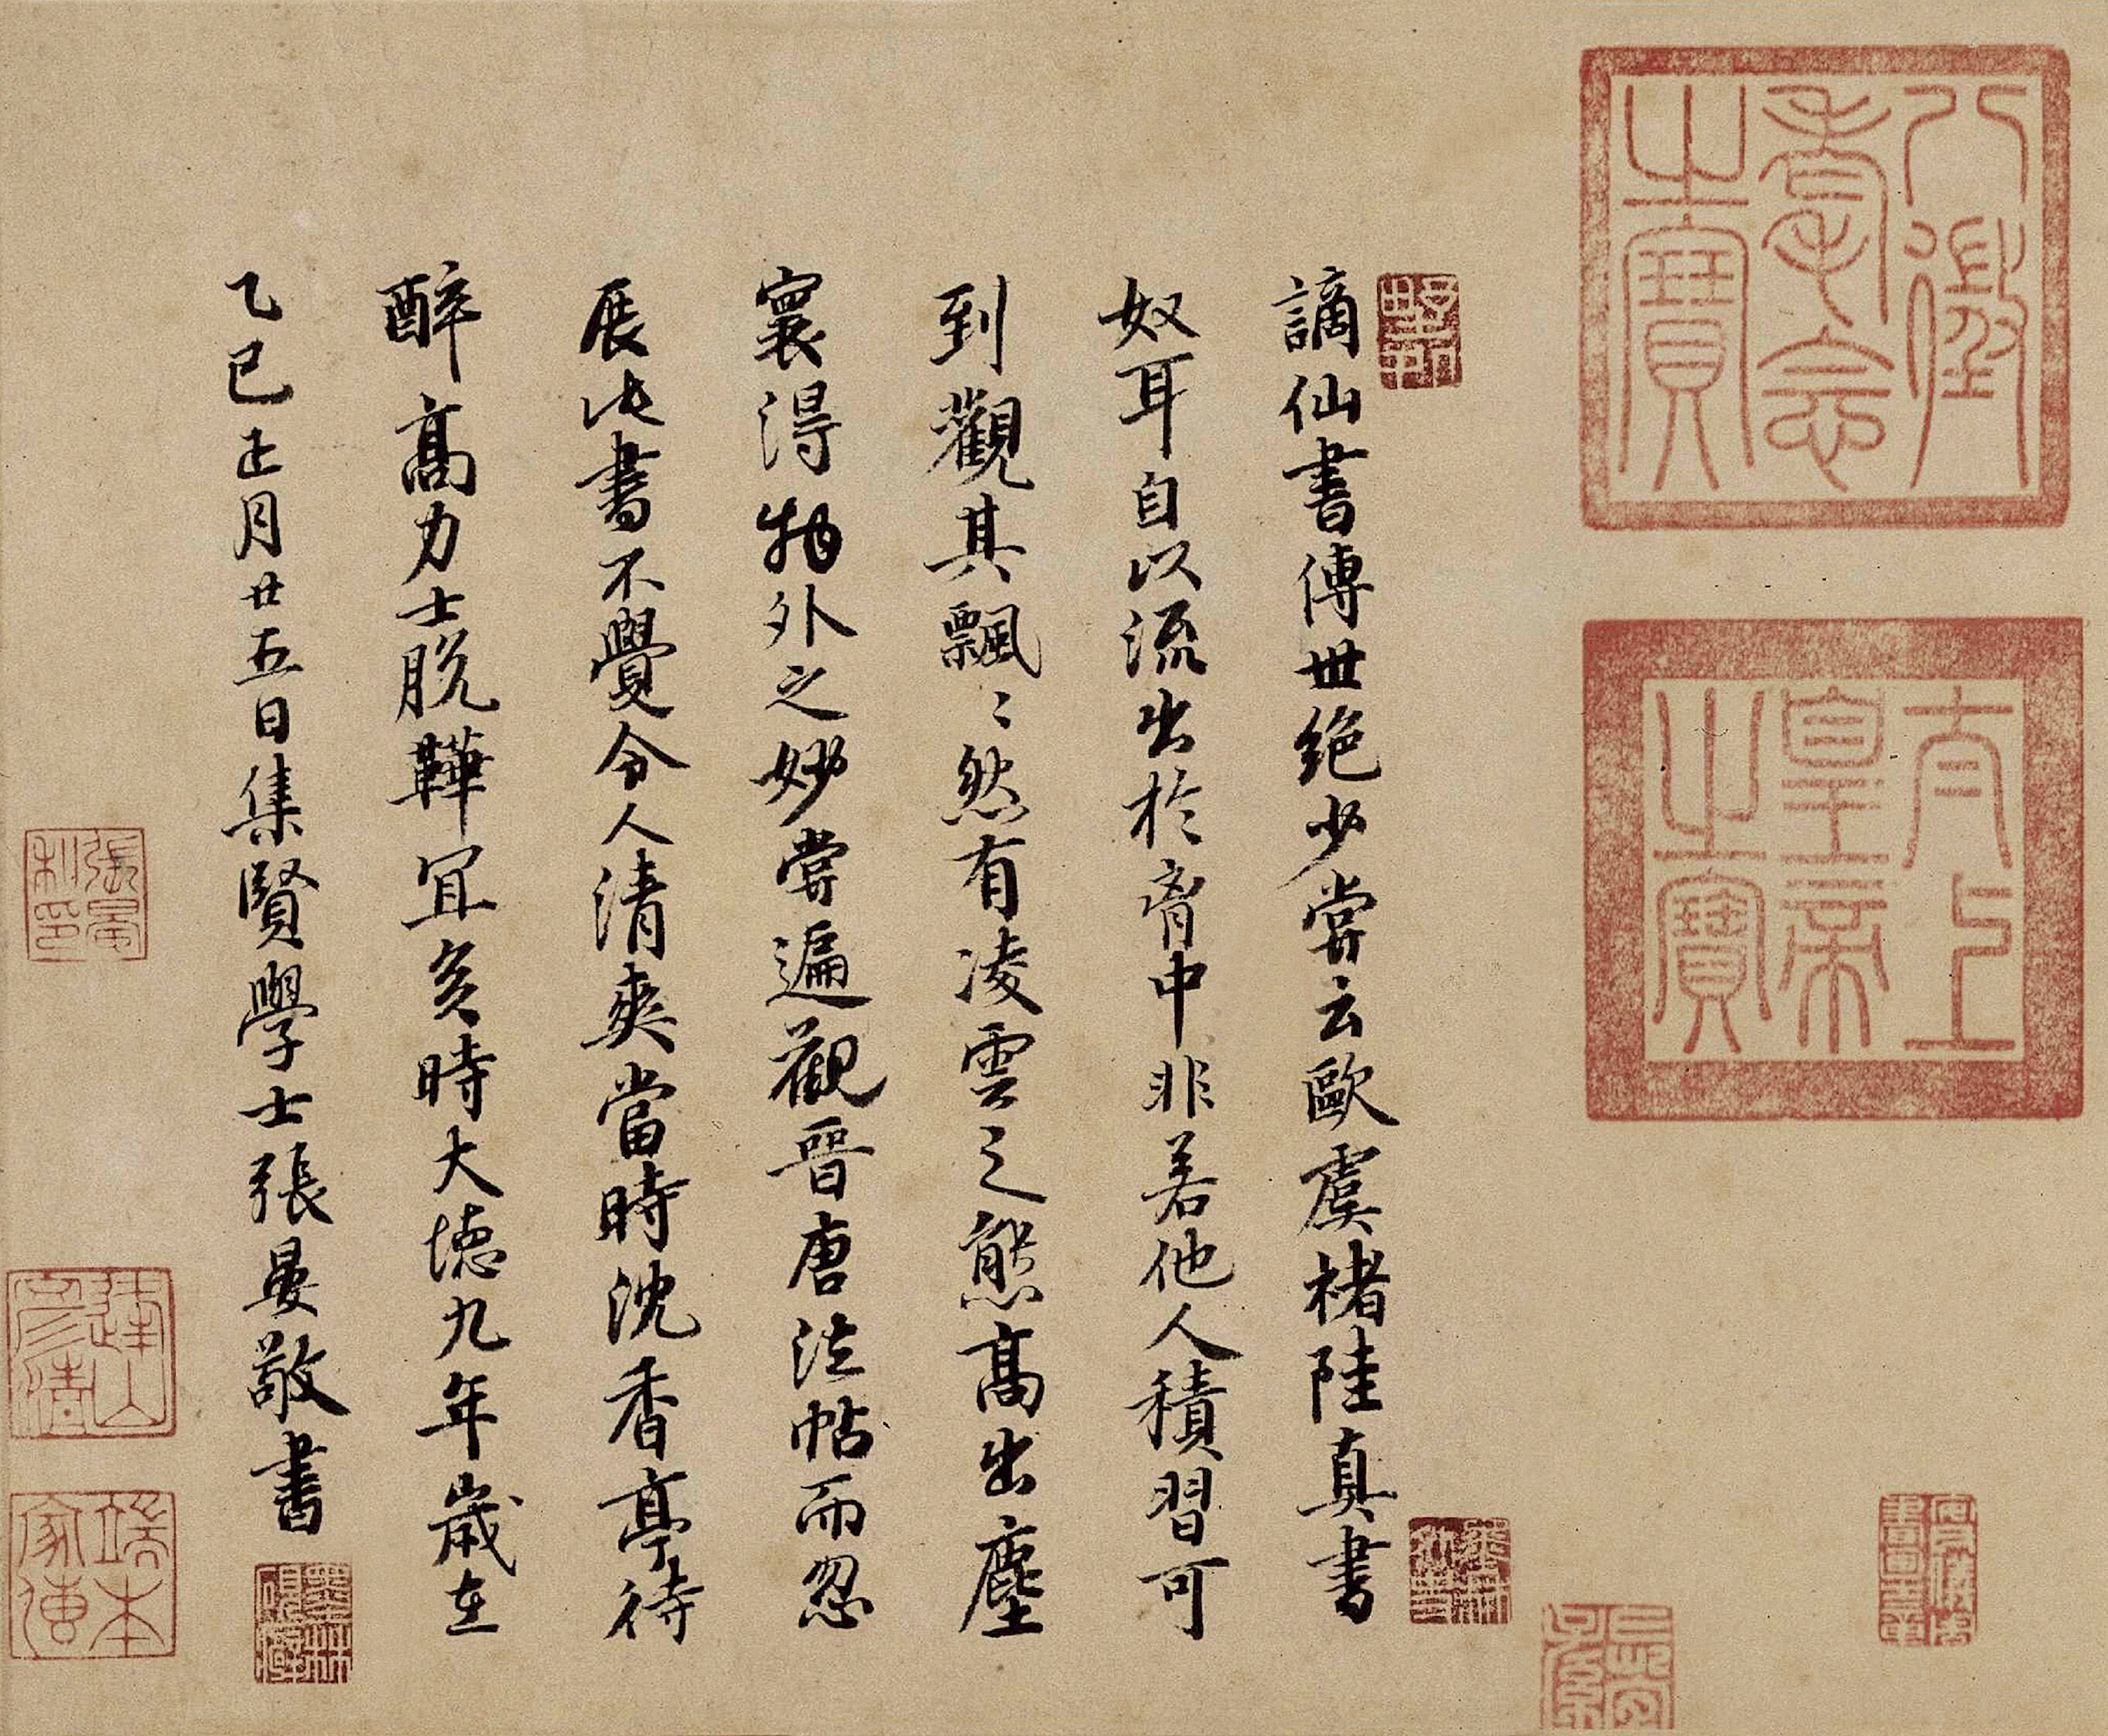 八徵
耄念
之寶
太上
皇帝
之寶
謫仙書傳世絕少嘗云歐虞褚陸真書
奴耳自以流出於胷中非若他人積習可
到觀其飄〻然有凌雲之態高出塵
寰得物外之妙嘗遍觀晉唐法帖而忽
展此書不覺令人清爽當時沈香亭待
醉高力士脫鞾冝矣時大德九年歲在
乙巳正月廿五日集賢學士張晏敬書
張晏
私印
端本
家傳